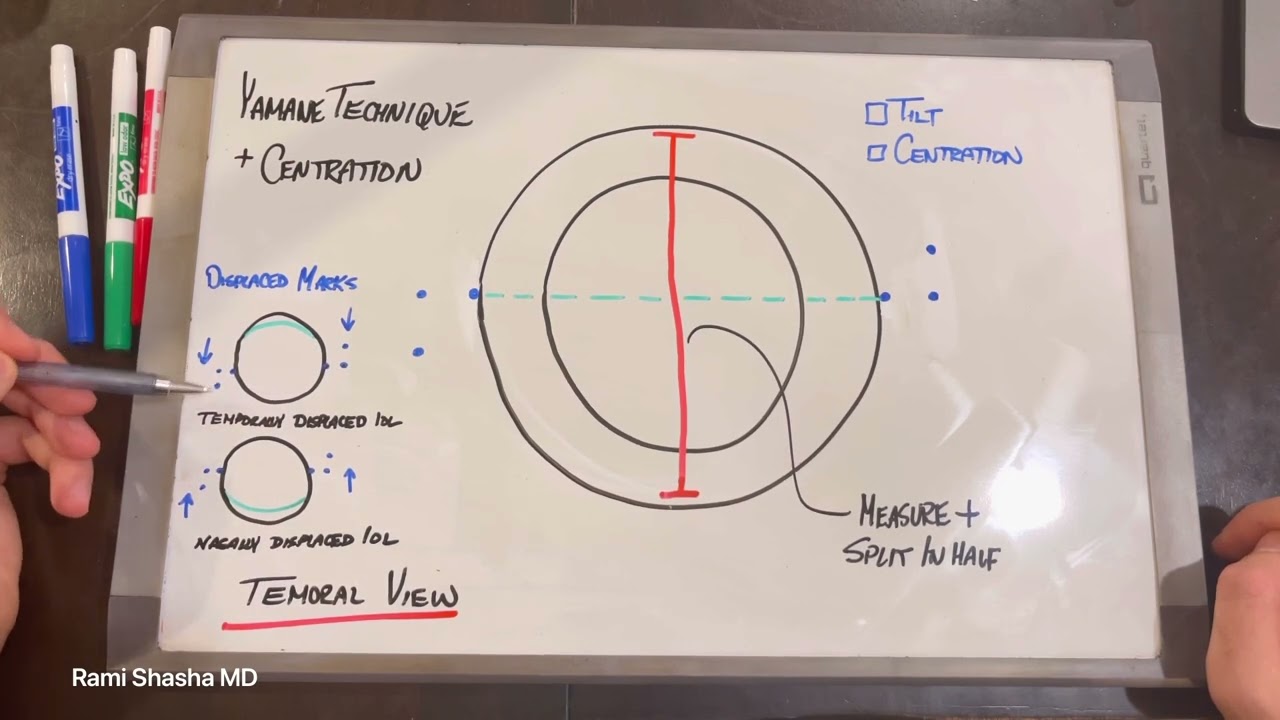 YAMANE TECHNIQUE
+ CENTRATION
TILT
CENTRATION
EXPO
EXPO
quartet
DISPLACED MARKS
TEMPORALLY DISPLACED IOL
NASALLY DISPLACED IOL
TEMORAL VIEW
MEASURE +
SPLIT IN HALF
Rami Shasha MD